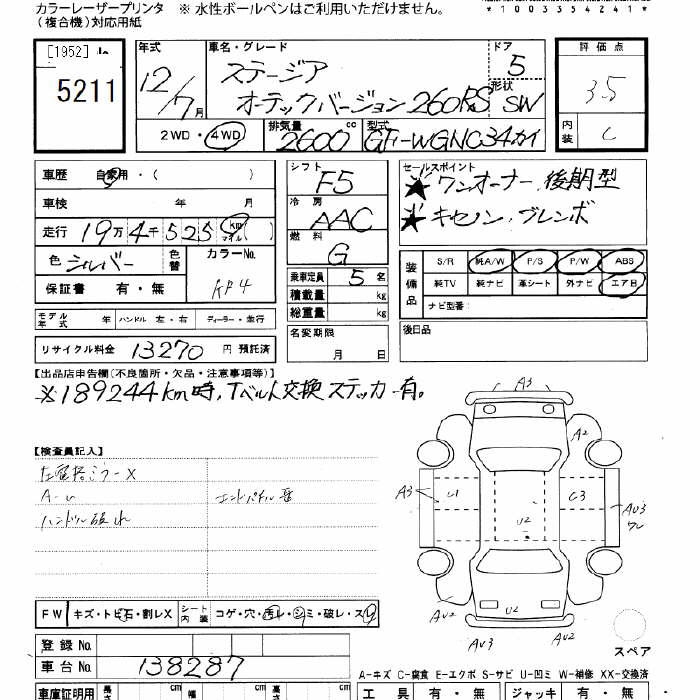 カラーレーザープリンタ ※ 水性ボールペンはご利用いただけません。
(複合機)対応用紙
*1003354241*
[1952]
5211
年式
12/7月
車名・グレード
ステージア
オーテックバージョン260RS
ドア
5
形状
SW
評価点
3.5
内装
C
2WD・4WD
排気量
2600 cc
型式
GF-WGNC34カイ
車歴 自家用・( )
車検 年 月
走行 19万4千525 km マイル ( )
色 シルバー 色替
カラーNo.
KR4
保証書 有・無
シフト
F5
冷房
AAC
燃料
G
乗車定員 5 名
積載量 kg
総重量 kg
セールスポイント
★ワンオーナー,後期型
★キセノン,ブレンボ
装備品
S/R 純A/W P/S P/W ABS
純TV 純ナビ 革シート 外ナビ エアB
ナビ型番:
モデル年式 年 ハンドル 左・右 ディーラー・並行
名変期限
月 日
後日品
リサイクル料金 13270 円 預託済
【出品店申告欄(不良箇所・欠品・注意事項等)】
※189244km時,Tベルト交換ステッカー有。
【検査員記入】
左電格ミラーX
A-U
エンドパネル
ハンドル破れ
A3
A2
A3
U1
C3
AU3
ワレ
U2
AU2
U2
AU3
AU2
スペア
FW キズ・トビ石・割レX
シート内装 コゲ・穴・汚レ・シミ・破レ・スレ
登録No.
車台No. 138287
A-キズ C-腐食 E-エクボ S-サビ U-凹ミ W-補修 XX-交換済
車庫証明用 長さ cm 幅 cm 高さ cm
工具 有・無 ジャッキ 有・無